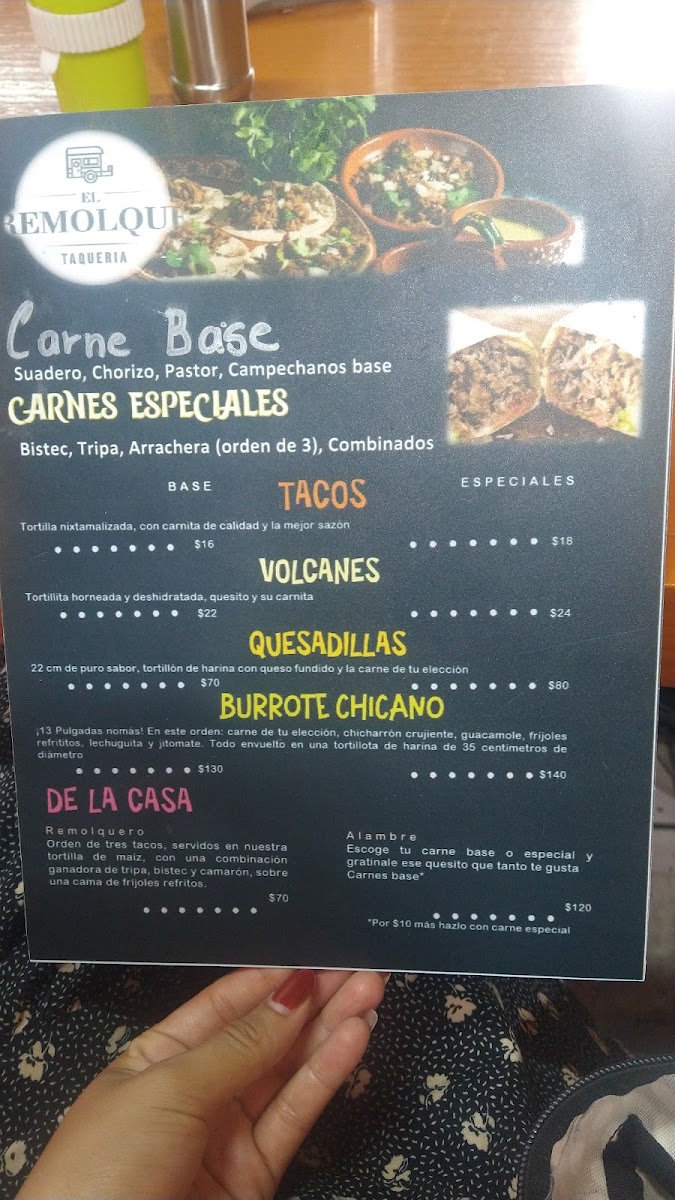 EL
REMOLQUE
TAQUERIA
Carne Base
Suadero, Chorizo, Pastor, Campechanos base
CARNES ESPECIALES
Bistec, Tripa, Arrachera (orden de 3), Combinados
BASE TACOS ESPECIALES
Tortilla nixtamalizada, con carnita de calidad y la mejor sazón
$16 $18
VOLCANES
Tortillita horneada y deshidratada, quesito y su carnita
$22 $24
QUESADILLAS
22 cm de puro sabor, tortillón de harina con queso fundido y la carne de tu elección
$70 $80
BURROTE CHICANO
¡13 Pulgadas nomás! En este orden: carne de tu elección, chicharrón crujiente, guacamole, frijoles
refrititos, lechuguita y jitomate. Todo envuelto en una tortillota de harina de 35 centímetros de
diámetro
$130 $140
DE LA CASA
Remolquero
Orden de tres tacos, servidos en nuestra
tortilla de maíz, con una combinación
ganadora de tripa, bistec y camarón, sobre
una cama de frijoles refritos.
$70
Alambre
Escoge tu carne base o especial y
gratinale ese quesito que tanto te gusta
Carnes base*
$120
*Por $10 más hazlo con carne especial